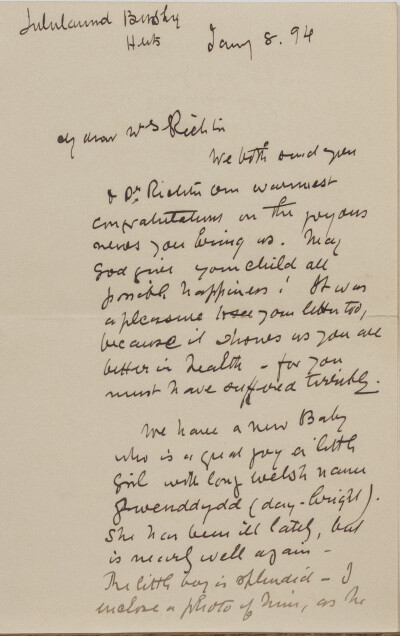 Lululaund Bushey
Herts
Jany 8. 94
My dear Mrs Richter
We both send you
& Dr. Richter our warmest
congratulations on the joyous
news you bring us. May
God give your child all
possible happiness! It was
a pleasure to see your letter too,
because it shows us you are
better in health – for you
must have suffered terribly.
We have a new Baby
who is a great joy a little
girl with long Welsh name
Gwenddydd (day-bright).
She has been ill lately, but
is nearly well again –
The little boy is splendid – I
enclose a photo of him, as he